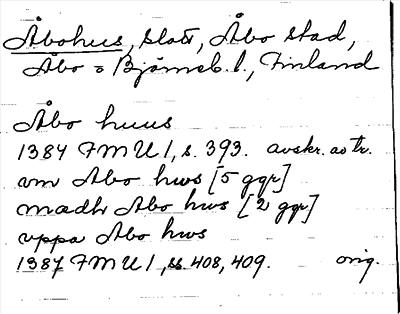 Åbohus, slott, Åbo stad,
Åbo o Björneb. l., Finland
Åbo huus
1384 FMU 1, s. 393. avskr. av tr.
vm Åbo hws [5 ggr]
mædh Åbo hws [2 ggr]
vppa Åbo hws
1387 FMU 1, ss. 408, 409. orig.